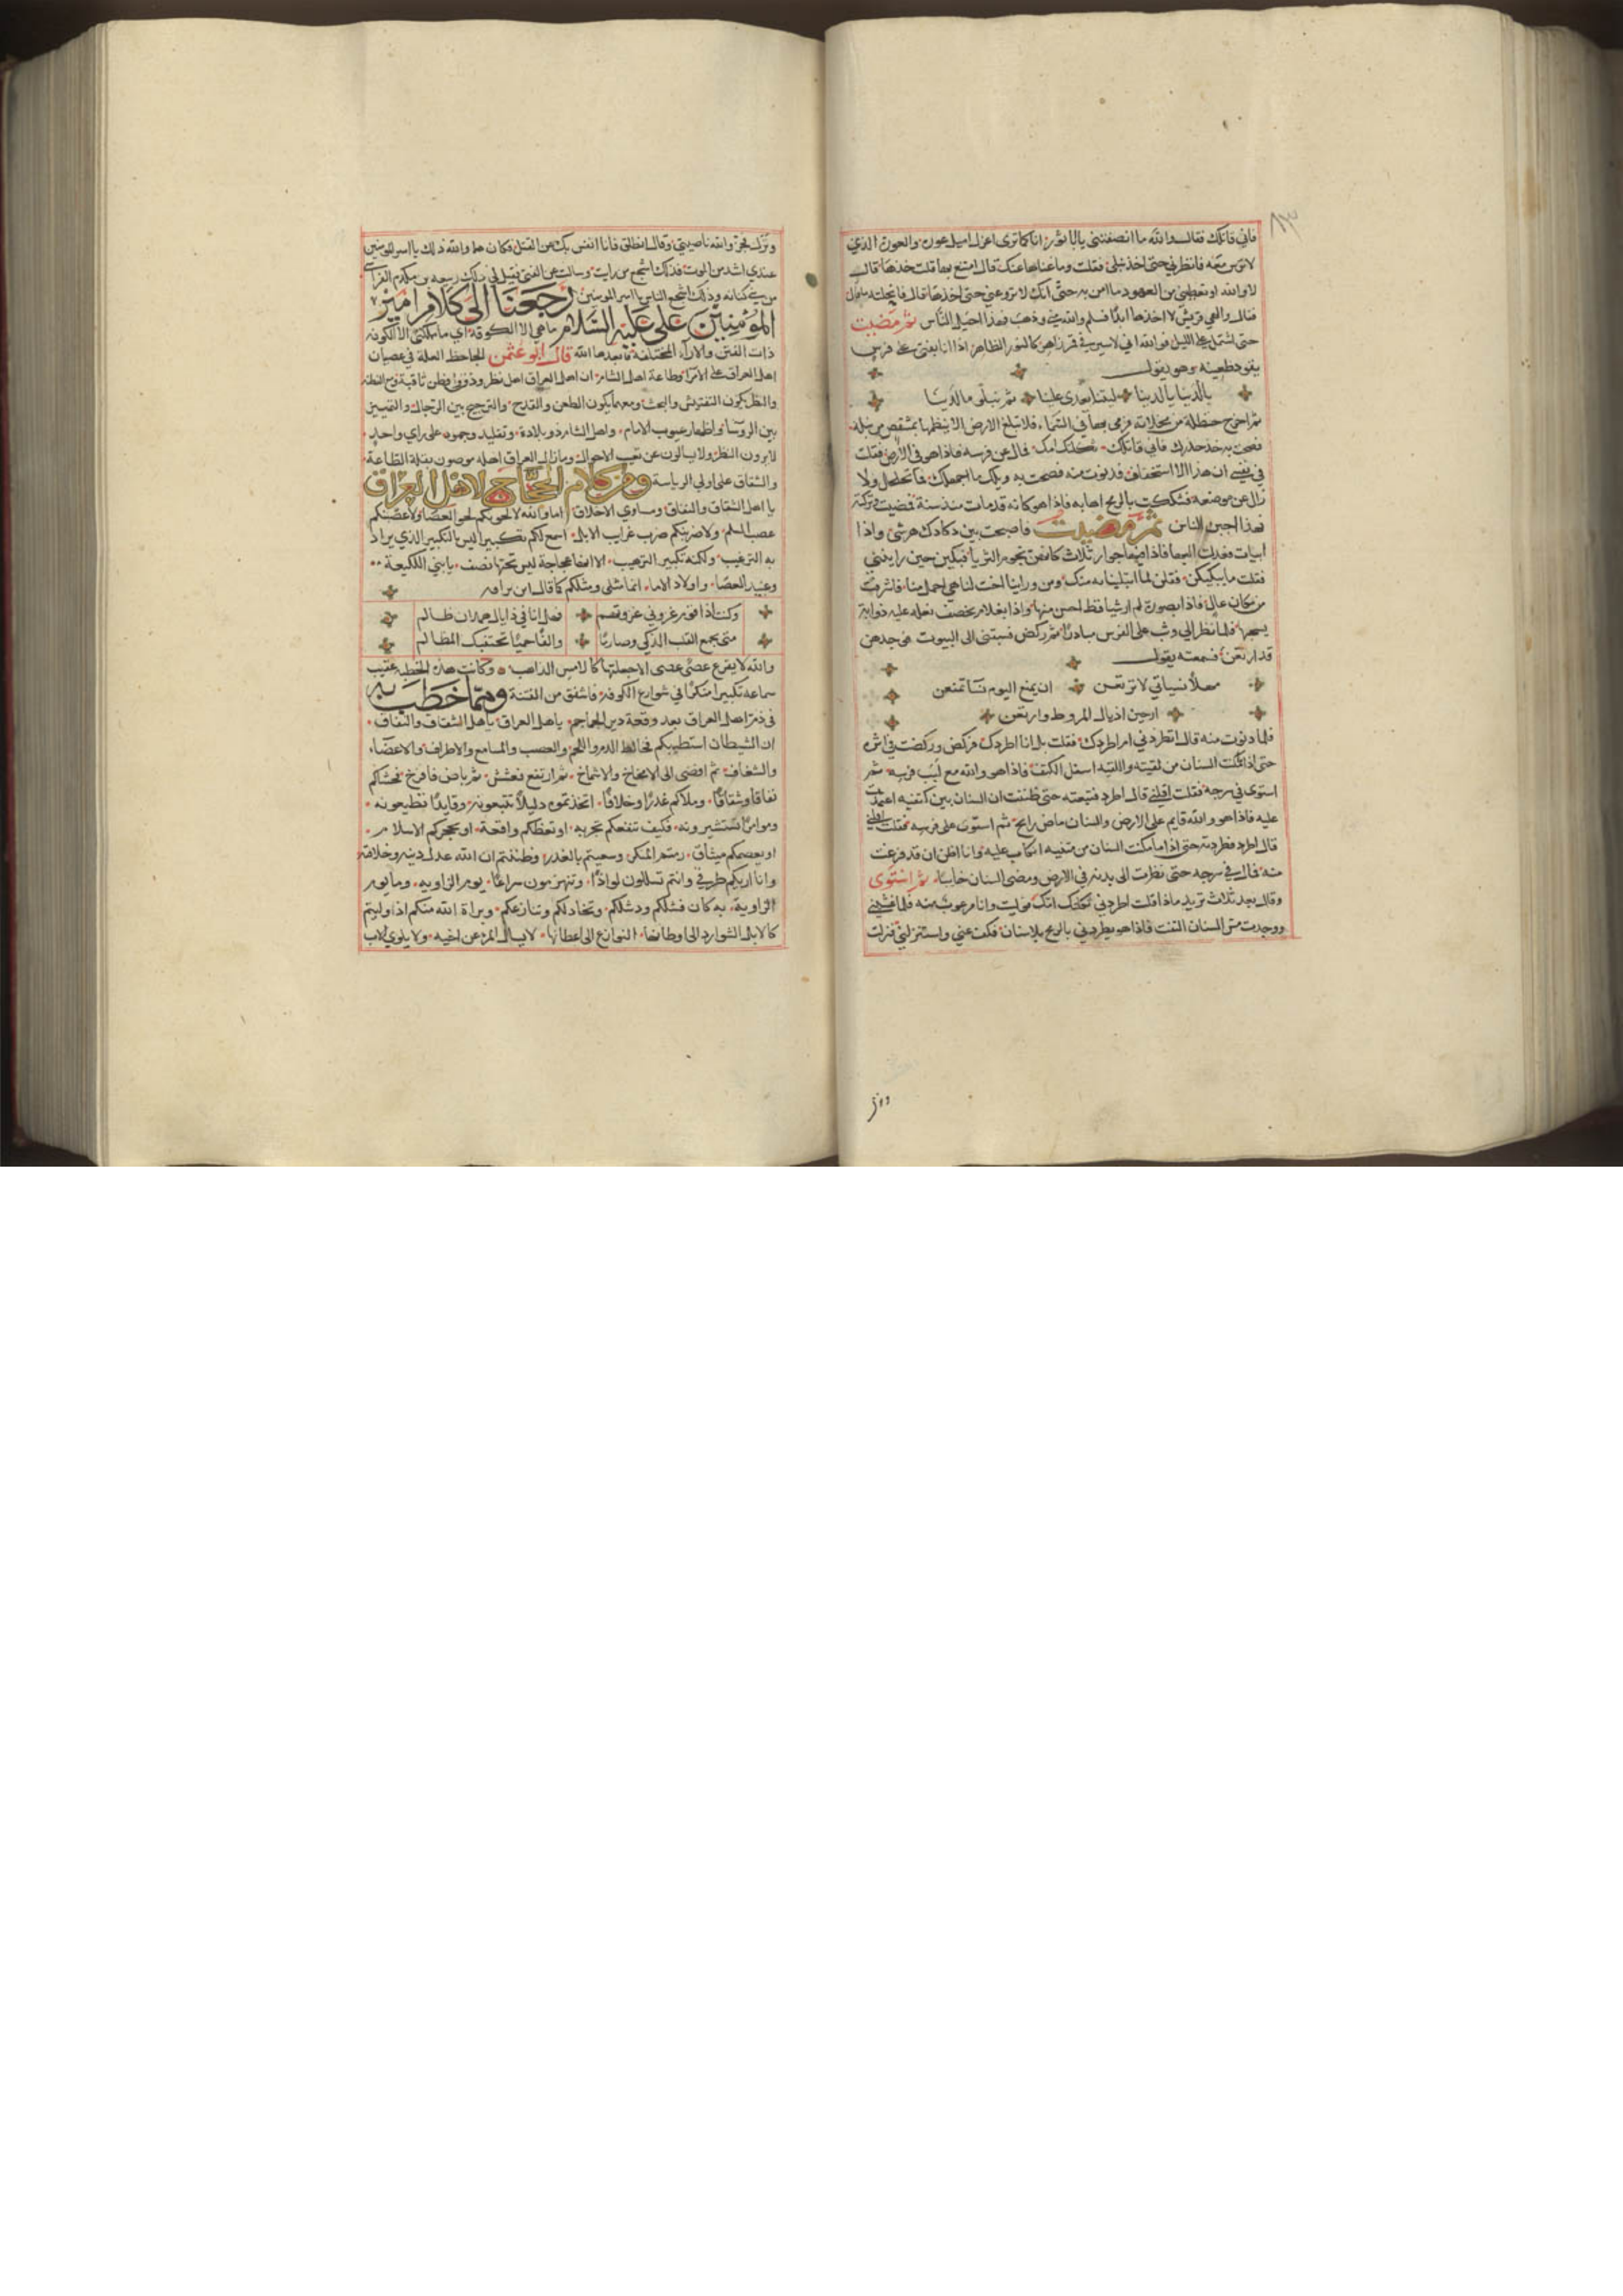 فاني قاتلك فقال والله ما انصفتني يا ابا ثور انا كما ترى اعزل اميل عوره والعورة الذي
لا ترس معه فانظرني حتى اخذ نبلى فقلت وما غناها عنك قال امتنع بها قلت خذها قال
لا والله او تعطيني من العهود ما امن به حتى انك لا تروعني حتى اخذها قال فانجلته
فقال والهي قريش لا اخذها ابدا فسلم والله مني وذهب فهذا احيل الناس ثم مضيت
حتى اشتمل علي الليل فوالله اني لاسير في قمر زاهر كالنور الظاهر اذا انا بفتى على فرس
يقود ظعينه وهو يقول
يا لدينا يا لدينا ليتنا يعدى علينا ثم نبلى ما لدينا
ثم اخرج حنظلة من مخلاته فرمى بها في السماء فلا تبلغ الارض الا ينظمها بمشقص من نبله
فصحت به خذ حذرك فاني قاتلك ثكلتك امك فال عن فرسه فاذا هو في الارض فقلت
في نفسي ان هذا الا استخفاف فدنوت منه فصحت به ويلك ما اجهلك فما تحلحل ولا
زال عن موضعه فشككت بالرمح اهابه فاذا هو كانه قد مات منذ سنة فمضيت وتركته
فهذا اجبن الناس ثم مضيت فاصبحت بين دكادك هرشى واذا
ابيات فعدلت اليها فاذا فيها جوار ثلاث كانهن نجوم الثريا فبكين حين راينني
فقلت ما يبكيكن فقلن لما ابتلينا به منك ومن وراينا اخت لنا هي اجمل منا فاشرفت
من مكان عال فاذا بصورة لم ار شيا قط احسن منها واذا بغلام يخصف نعله عليه ذوابة
يسحبها فلما نظر الي وثب على الفرس مبادرا ثم ركض فسبقني الى البيوت فوجدهن
قد ارتعن فسمعته يقول
مهلا نسياتي لا ترتعن ان يمنع اليوم نسا تمنعن
ارخين اذيال المروط وارتعن
فلما دنوت منه قال اتطردني ام اطردك فقلت بل انا اطردك فركض وركضت في اثره
حتى اذا مكنت السنان من لفتته واللفته اسفل الكتف فاذا هو والله مع لبب فرسه ثم
استوى في سرجه فقلت اقلني قال اطرد فتبعته حتى ظننت ان السنان بين كتفيه اعتمدت
عليه فاذا هو والله قايم على الارض والسنان ماض رايح ثم استوى على فرسه فقلت اقلني
قال اطرد فطردته حتى اذا ما مكنت السنان من متنيه اتكات عليه وانا اظن ان قد فرغت
منه فال في سرجه حتى نظرت الى يديه في الارض ومضى السنان خايبا ثم استوى
وقال بعد ثلاث تريد ماذا قلت اطردني ثكلتك امك فوليت وانا مرعوب منه فلما غشيني
ووجدت مس السنان التفت فاذا هو يطردني بالرمح بلا سنان فكف عني واستنزلني فنزلت
ونزل
ونزل فجز والله ناصيتي وقال انطلق فانا انفس بك عن القتل فكان هذا والله ذلك يا امير المومنين
عندي اشد من الموت فذاك اشجع من رايت وسالت عن الفتى فقيل لي ذلك ربيعه بن مكدم الفراسي
من بني كنانه وذلك اشجع الناس يا امير المومنين رجعنا الى كلام امير
المؤمنين علي عليه السلام ما هي الا الكوفة اي ما مملكتى الا الكوفه
ذات الفتن والاراء المختلفة فابعدها الله قال ابو عثمن الجاحظ العلة في عصيان
اهل العراق على الامرا وطاعة اهل الشام ان اهل العراق اهل نظر وذووا فطن ثاقبة ومع الفطنه
والنظر يكون التفتيش والبحث ومعهما يكون الطعن والقدح والترجيح بين الرجال والتمييز
بين الروسا واظهار عيوب الامام واهل الشام ذو بلادة وتقليد وجمود على راي واحد
لا يرون النظر ولا يسالون عن تغيب الاحوال وما زال العراق اهله موصون بقلة الطاعة
والشقاق على اولي الرياسة ومن كلام الحجاج لاهل العراق
يا اهل الشقاق والنفاق ومساوي الاخلاق اما والله لالحونكم لحو العصا ولاعصبنكم
عصب السلم ولاضربنكم ضرب غرايب الابل اسمع لكم تكبيرا ليس بالتكبير الذي يراد
به الترغيب ولكنه تكبير الترهيب الا انها عجاجة ليس تحتها نصف يا بني اللكيعة
وعبيد العصا واولاد الاما انما مثلي ومثلكم كما قال ابن براقه
وكنت اذا قوم غزوني غزوتهم فهل انا في ذا يال همدان ظالم
متى تجمع القلب الذكي وصارما وانفا حميا تجتنبك المظالم
والله لا يقرع عصى عصى الا جعلتها كالامس الذاهب وكانت هذه الخطبه عقيب
سماعه تكبيرا منكرا في شوارع الكوفه فاشفق من الفتنة ومما خطب به
في ذم اهل العراق بعد وقعة دير الجماجم يا اهل العراق يا اهل الشقاق والنفاق
ان الشيطان استطبكم فخالط الدم واللحم والعصب والمسامع والاطراف والاعضاء
والشغاف ثم افضى الى الامخاخ والاشماخ ثم ارتفع فعشش ثم باض فافرخ فحشاكم
نفاقا وشقاقا وملاكم غدرا وخلافا اتخذتموه دليلا تتبعونه وقايدا تطيعونه
وموامرا تستشيرونه فكيف تنفعكم تجربه او تعظكم واقعة او يحجزكم الاسلام
او يعصمكم ميثاق رمتم المكر وسعيتم بالغدر وظننتم ان الله عدل دينه وخلافته
وانا اريكم طرفي وانتم تسللون لواذا وتنهزمون سراعا يوم الزاويه وما يوم
الزاوية به كان فشلكم وتخاذلكم وتنازعكم وبراة الله منكم اذ اوليتم
كالابل الشوارد الى اوطانها النوازع الى اعطانها لا يسال المرء عن اخيه ولا يلوي الاب